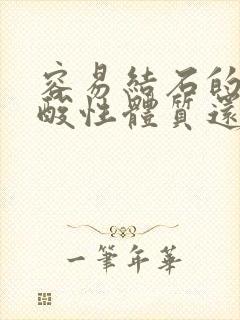 容易結石的
酸性體質還
一筆年華